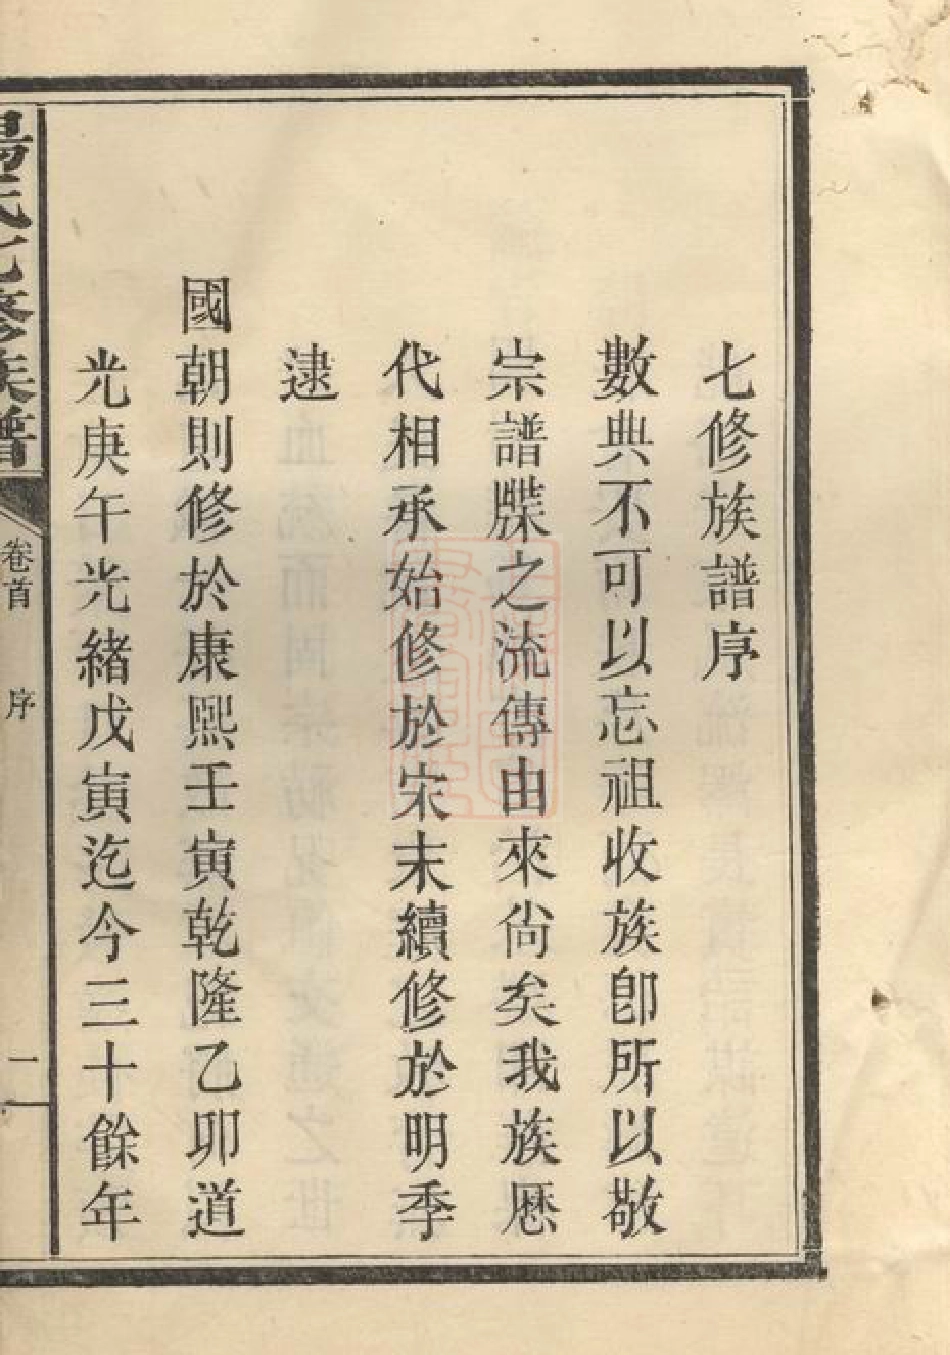 七修族譜序
數典不可以忘祖收族卽所以敬
宗譜牒之流傳由來尙矣我族歷
代相承始修於宋末續修於明季
逮
國朝則修於康熙壬寅乾隆乙卯道
光庚午光緒戊寅迄今三十餘年
氏七修族譜
卷首
序
二